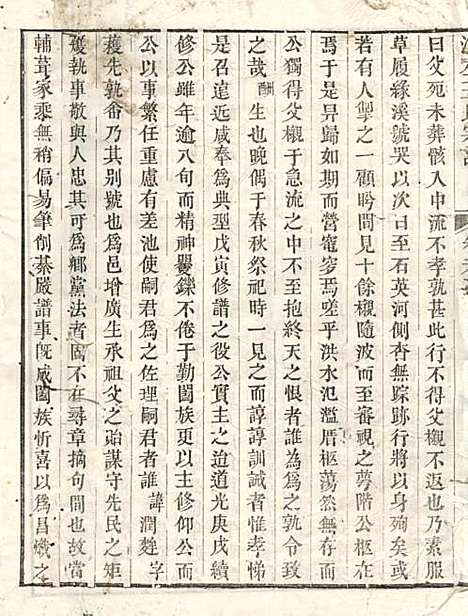 曰父死未葬骸入中流不孝孰甚此行不得父櫬不返也素服
草履緣溪號哭以次日至石英河側杳無踪跡行將以身殉矣或
若有人掣之一顧盻間見十餘櫬隨波而至審視之夢階公柩在
焉于是舁歸如期而營窀穸焉嗟乎洪水氾濫厝柩蕩然無存而
公獨得父櫬于急流之中不至抱終天之恨者誰為為之孰令致
之哉酬生也晚偶于春秋祭祀時一見之而諄諄訓誡者惟孝悌
是召遠近咸奉為典型戊寅修譜之役公實主之迨道光庚戌續
修公雖年逾八旬而精神矍鑠不倦于勤闔族更以主修仰公而
公以事繁任重慮有差池使嗣君為之佐理嗣君者誰諱潤纏字
蒦先執畬乃其別號也為邑增廣生承祖父之詒謀守先民之矩
矱執事敬與人忠其可為鄉黨法者固不在尋章摘句間也故當
輔葺家乘無稍偏易筆削綦嚴譜事既成闔族忻喜以為昌熾之